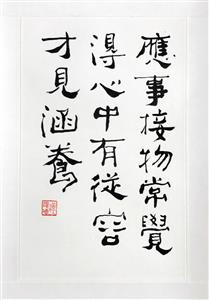 應事接物常覺
得心中有從容
才見涵養